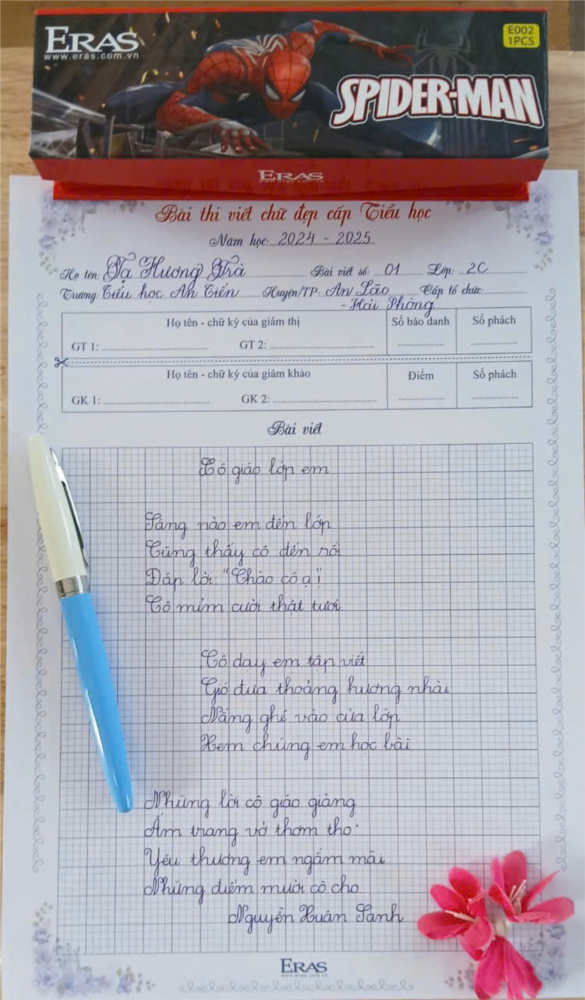 ERAS
www.eras.com.vn
E002
1PCS
SPIDER-MAN
ERAS
Bài thi viết chữ đẹp cấp Tiểu học
Năm học: 2024 - 2025
Họ tên: Tạ Hương Trà Bài viết số: 01 Lớp: 2C
Trường: Tiểu học An Tiến Huyện/TP: An Lão Cấp tổ chức:
- Hải Phòng
Họ tên - chữ ký của giám thị Số báo danh Số phách
GT 1: GT 2:
Họ tên - chữ ký của giám khảo Điểm Số phách
GK 1: GK 2:
Bài viết
Cô giáo lớp em
Sáng nào em đến lớp
Cũng thấy cô đến rồi
Đáp lời "Chào cô ạ!
Cô mỉm cười thật tươi.
Cô dạy em tập viết
Gió đưa thoảng hương nhài
Nắng ghé vào cửa lớp
Xem chúng em học bài
Những lời cô giáo giảng
Ấm trang vở thơm tho
Yêu thương em ngắm mãi
Những điểm mười cô cho.
Nguyễn Xuân Sanh
ERAS